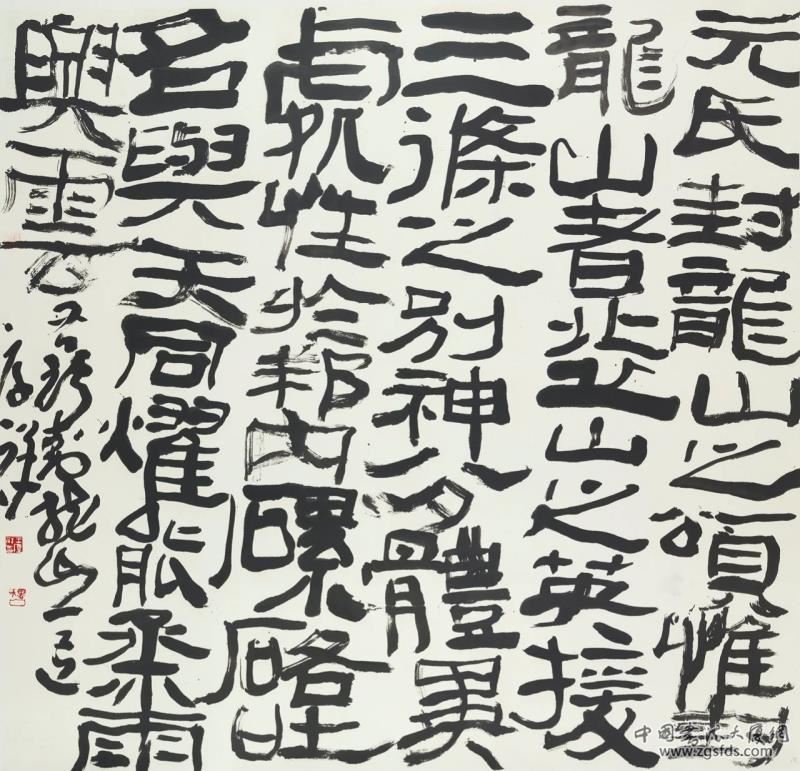 元氏封龍山之頌惟封
龍山者北岳之英援
三條之別神分體異
處性於邦內磥硌吐
名與天同耀能烝雨
興雲
龍山
中國書法大廈網
www.zgsfds.com